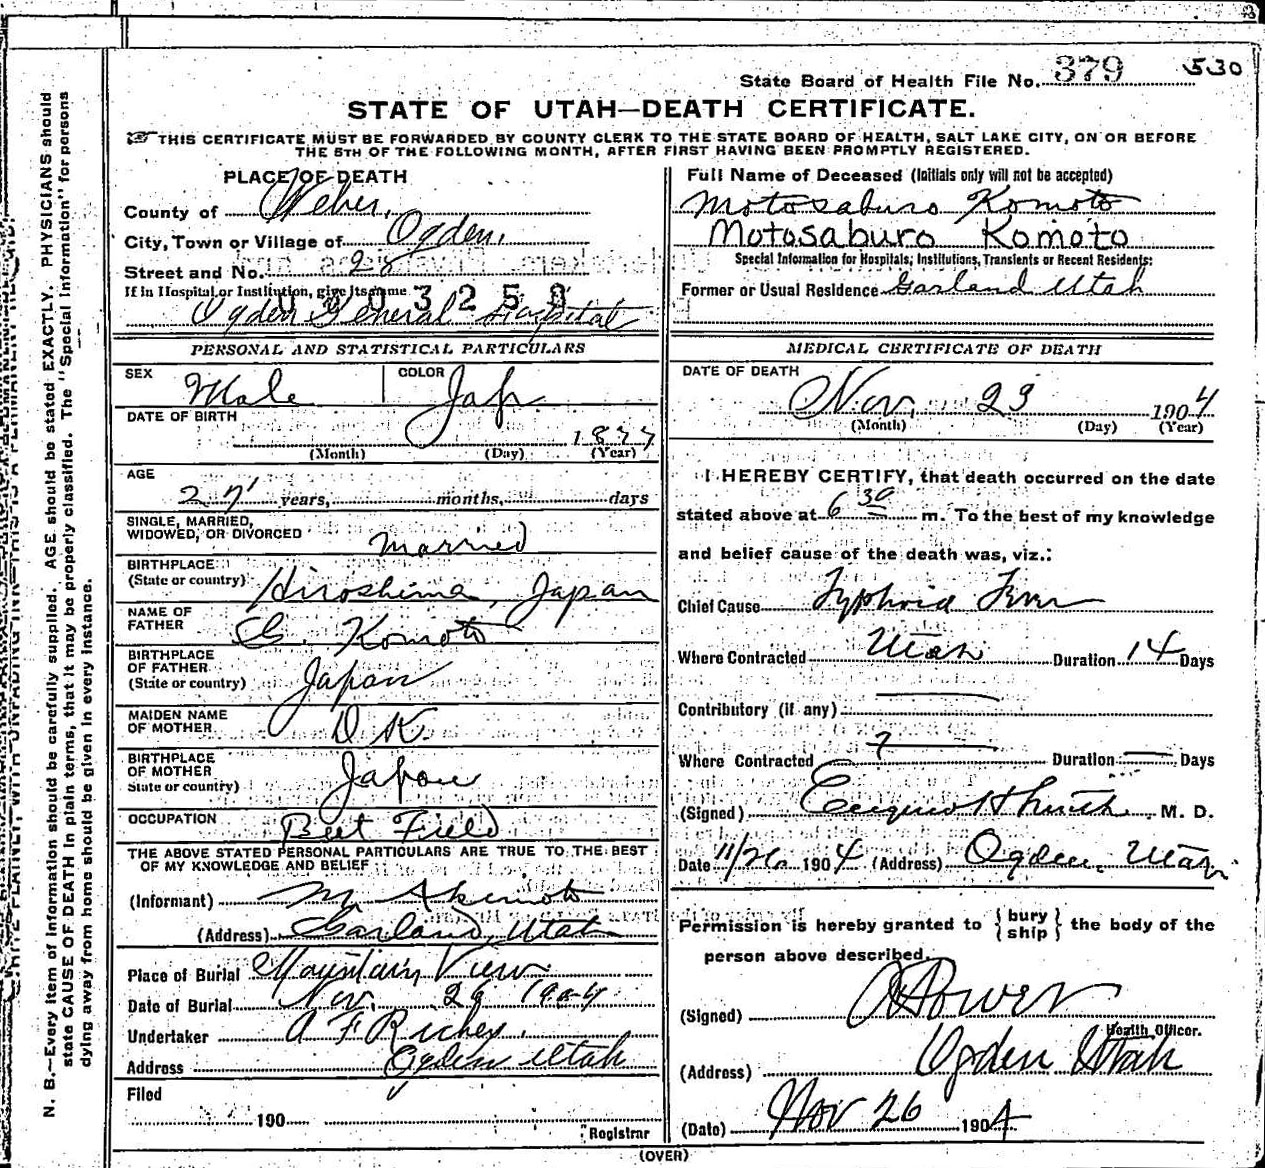 State Board of Health File No. 379 530
STATE OF UTAH—DEATH CERTIFICATE.
THIS CERTIFICATE MUST BE FORWARDED BY COUNTY CLERK TO THE STATE BOARD OF HEALTH, SALT LAKE CITY, ON OR BEFORE
THE 5TH OF THE FOLLOWING MONTH, AFTER FIRST HAVING BEEN PROMPTLY REGISTERED.
PLACE OF DEATH
County of Weber,
City, Town or Village of Ogden.
Street and No. 28
If in Hospital or Institution, give its name
0903258
Ogden General Hospital
Full Name of Deceased (Initials only will not be accepted)
Motosaburo Komoto
Motosaburo Komoto
Special Information for Hospitals, Institutions, Transients or Recent Residents:
Former or Usual Residence Garland Utah
PERSONAL AND STATISTICAL PARTICULARS
SEX Male COLOR Jap
DATE OF BIRTH
1877
(Month) (Day) (Year)
AGE
27 years, months, days
SINGLE, MARRIED,
WIDOWED, OR DIVORCED Married
BIRTHPLACE
(State or country) Hiroshima, Japan
NAME OF
FATHER G. Komoto
BIRTHPLACE
OF FATHER
(State or country) Japan
MAIDEN NAME
OF MOTHER D K.
BIRTHPLACE
OF MOTHER
State or country) Japan
OCCUPATION Beet Field
THE ABOVE STATED PERSONAL PARTICULARS ARE TRUE TO THE BEST
OF MY KNOWLEDGE AND BELIEF
(Informant) M. Akimoto
(Address) Garland, Utah
Place of Burial Mountain View.
Date of Burial Nov. 29 1904
Undertaker A F Richey.
Address Ogden Utah
Filed
190
Registrar
MEDICAL CERTIFICATE OF DEATH
DATE OF DEATH
Nov. 23 1904
(Month) (Day) (Year)
I HEREBY CERTIFY, that death occurred on the date
stated above at 6 30 m. To the best of my knowledge
and belief cause of the death was, viz.:
Chief Cause Typhoid Fever
Where Contracted Utah Duration 14 Days
Contributory (if any)
Where Contracted ? Duration Days
(Signed) H Smith M. D.
Date 11/26 1904 (Address) Ogden, Utah
Permission is hereby granted to { bury ship } the body of the
person above described.
(Signed) Power
Health Officer.
(Address) Ogden Utah
(Date) Nov 26 1904
(OVER)
N. B.—Every item of information should be carefully supplied. AGE should be stated EXACTLY. PHYSICIANS should
state CAUSE OF DEATH in plain terms, that it may be properly classified. The "Special Information" for persons
dying away from home should be given in every instance.